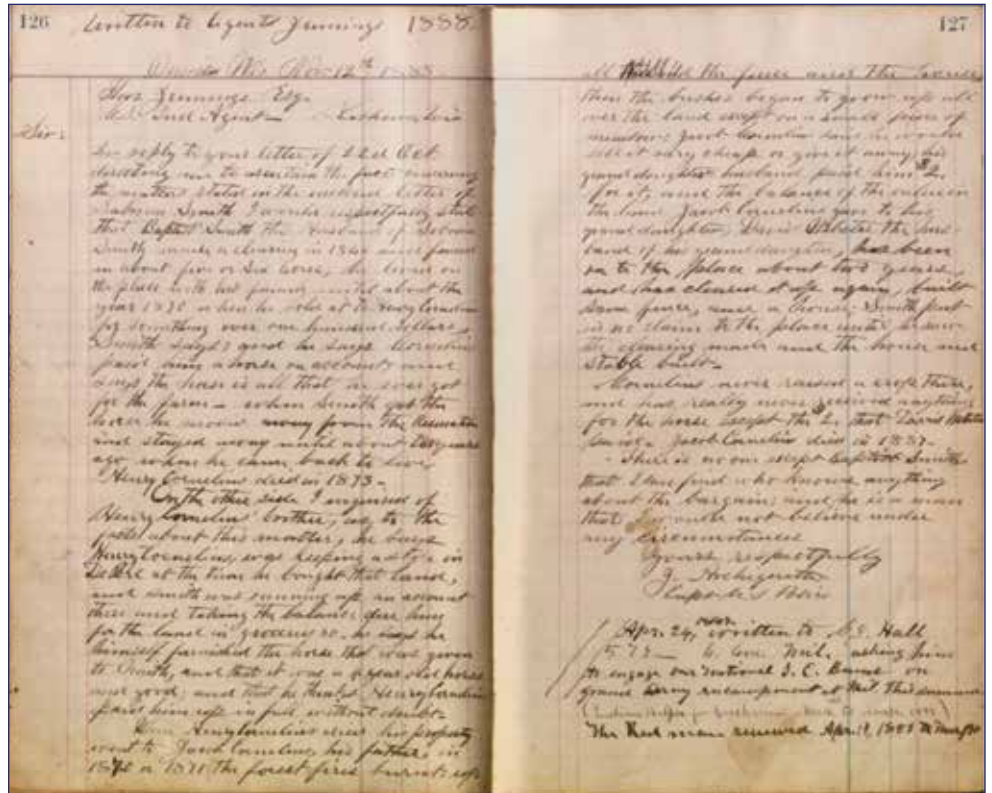 126 Written to Agent Jennings 1888.
Oneida Wis. Nov 12th 1888
Jennings Esq.
U.S. Ind Agent
Sir:
In reply to your letter of 22d Oct
directing me to ascertain the facts concerning
the matter stated in the enclosed letter of
Smith I would respectfully state
that Baptist Smith the husband of
Smith made a clearing in and fenced
in about five or six acres, he lived on
the place with his family until about the
year 1870 when he sold it to Henry Cornelius
for something over one hundred dollars,
Smith says; and he says Cornelius
paid him a horse on account and
says the horse is all that he ever got
for the farm – when Smith got the
horse he moved away from the Reservation
and stayed away until about years
ago when he came back to live.
Henry Cornelius died in 1873 –
On the other side I enquired of
Henry Cornelius' brother, as to the
facts about this matter, he says
Henry Cornelius was keeping a store in
De Pere at the time he bought that land,
and Smith was running up an account
there and taking the balance due him
for the land in he says he
himself furnished the horse that was given
to Smith, and that it was a year old horse
and good; and that he thinks Henry Cornelius
paid him up in full without doubt –
Henry Cornelius died his property
went to Jacob Cornelius, his father, in
or 1871 the forest fires burnt up
127
all the fence and the house
then the bushes began to grow up all
over the land except on a small piece of
meadow; Jacob Cornelius said he would
sell it very cheap or give it away, his
grand daughter's husband paid him $2.
for it, and the balance of the value in
the land Jacob Cornelius gave to his
grand daughter, David Webster the hus-
band of his grand daughter, has been
on to the place about two years,
and has cleared it up again, built
some fence, and a house; Smith put
in no claim to the place until he saw
the clearing made and the house and
stable built –
Cornelius never raised a crop there,
and has really never received anything
for the horse except the $2. that David Webster
gave – Jacob Cornelius died in 1887 –
There is no one except Baptist Smith
that I can find who knows anything
about the bargain; and he is a man
that would not believe under
any circumstances
Yours respectfully
Police
Apr. 24, written to Hall
Mil. asking him
to engage our National Band on
grand army encampment at Mil this summer
The Red man renewed Apr. 19,